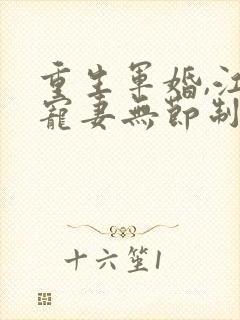 重生軍婚,江
寵妻無節制
十六笙1